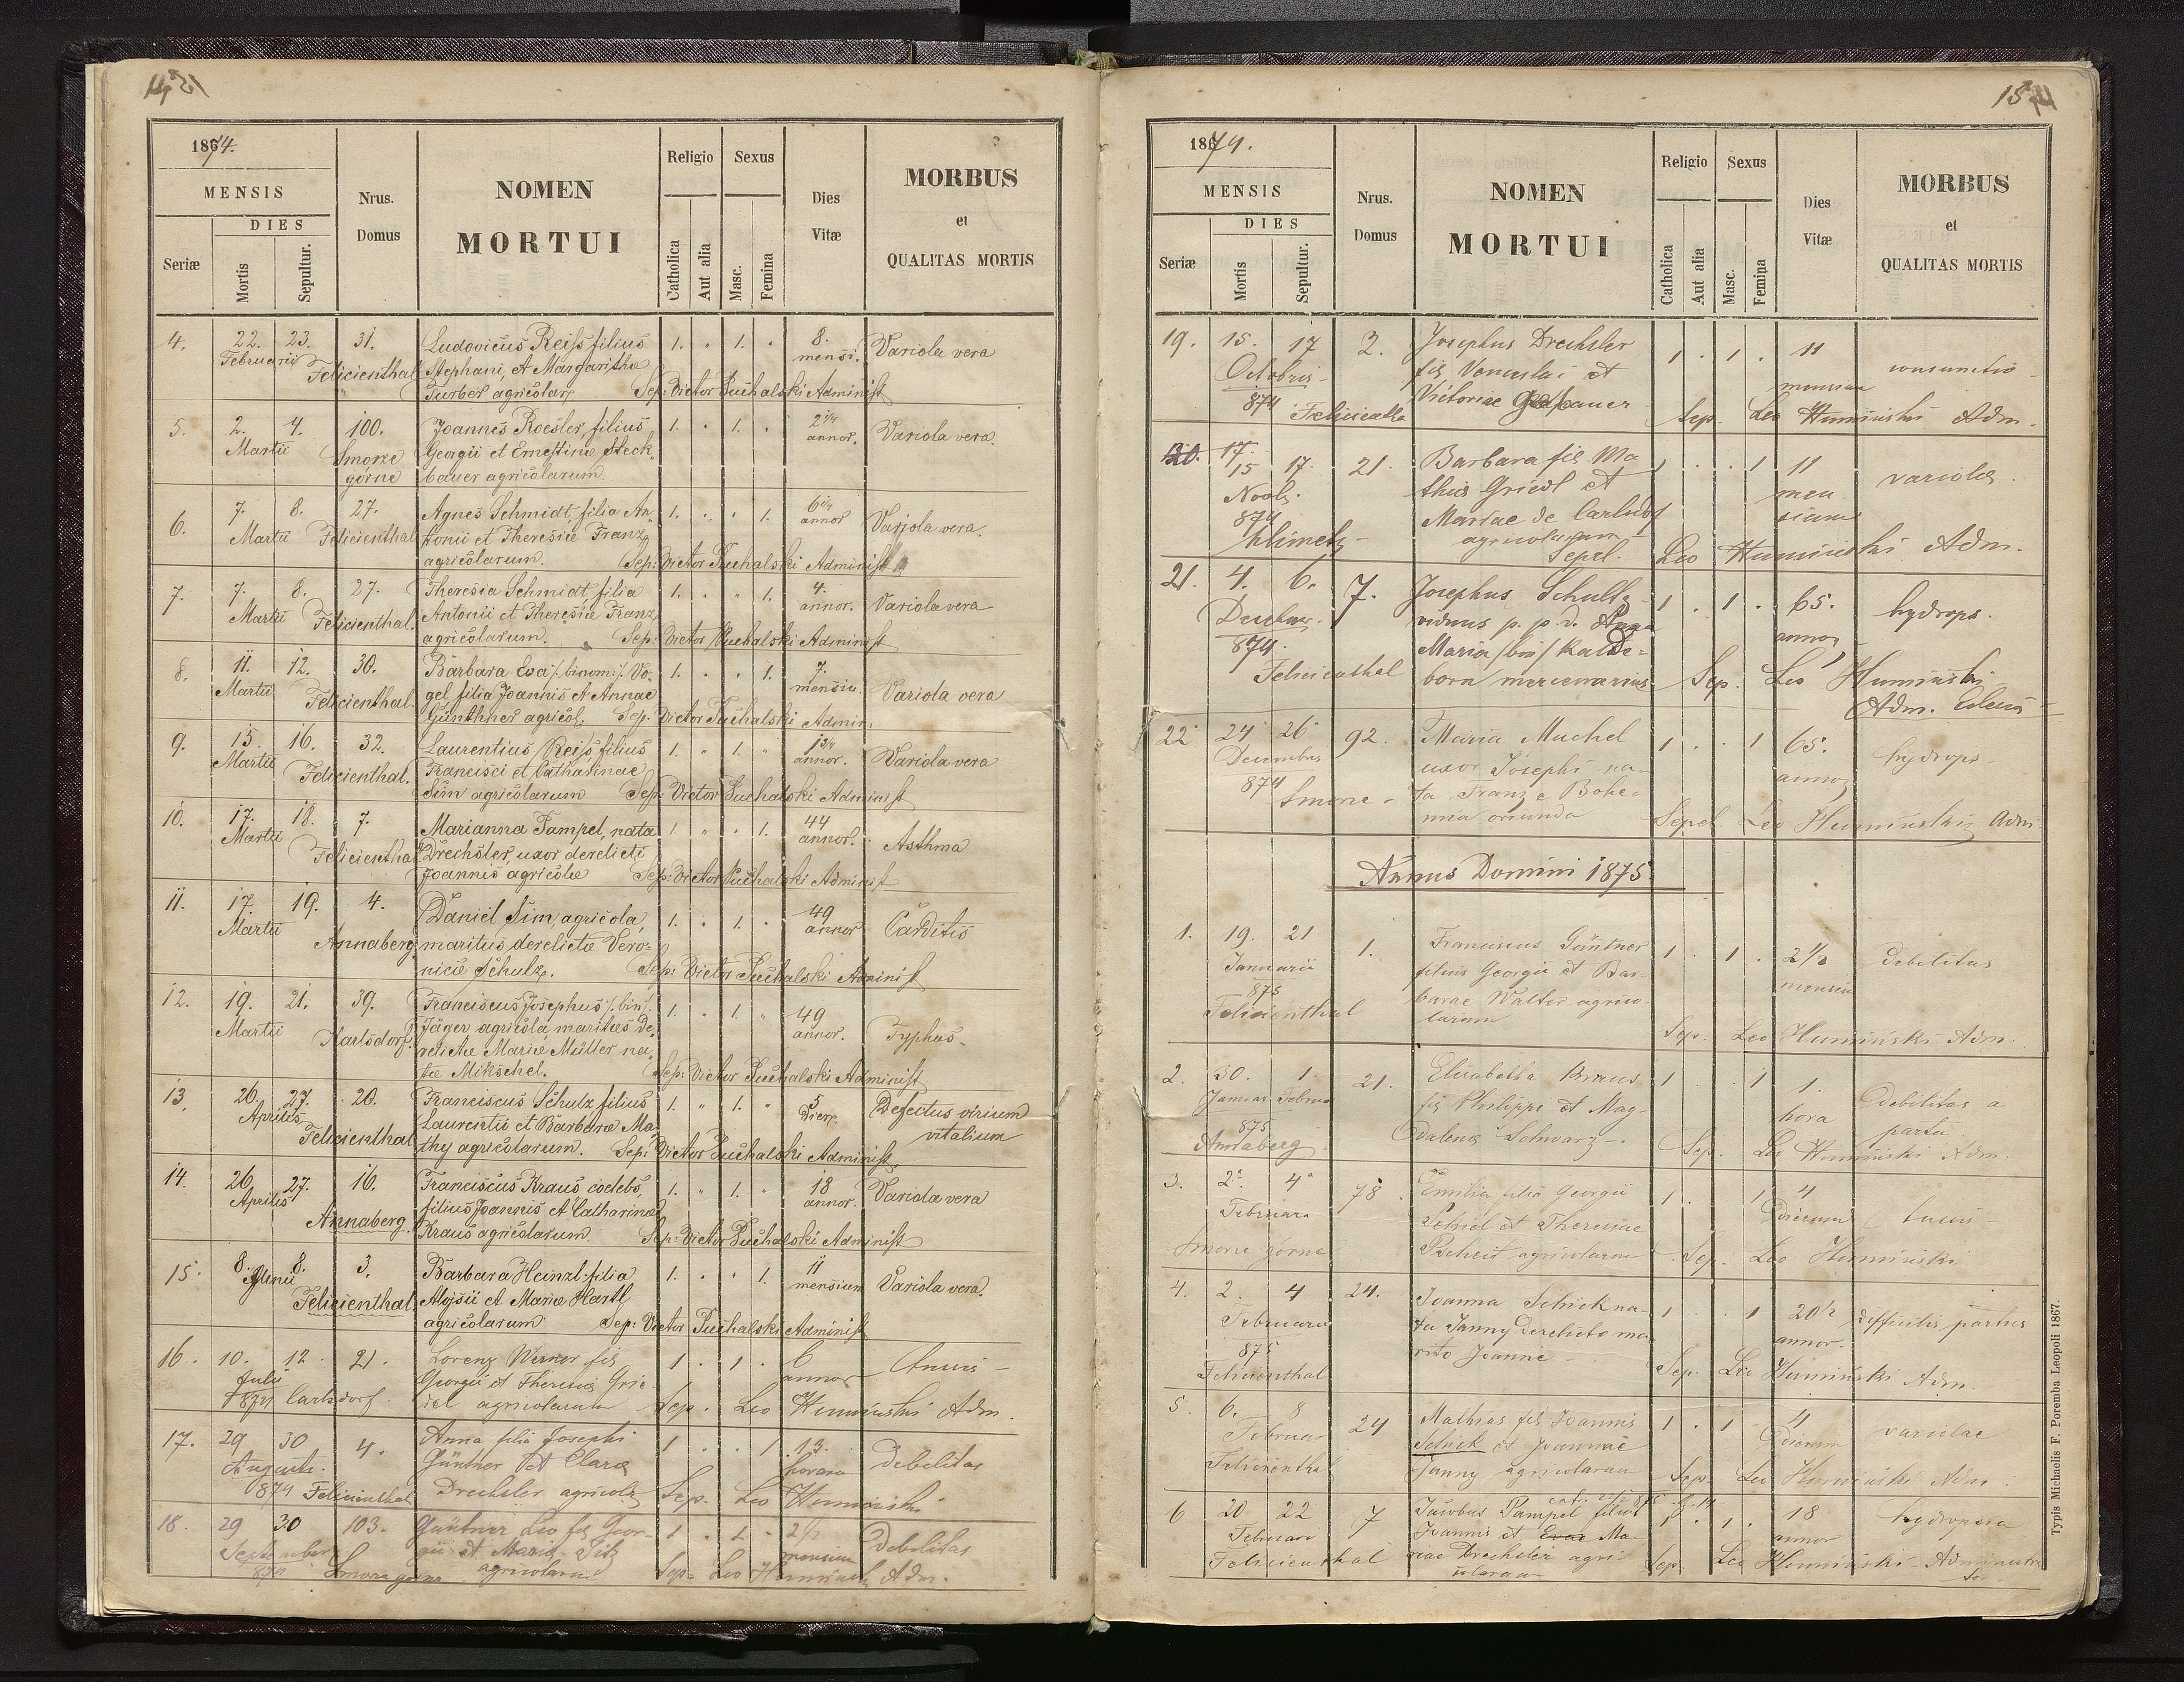 1874.
MENSIS
DIES
Seriæ
Mortis
Sepultur.
Nrus.
Domus
NOMEN
MORTUI
Religio
Catholica
Aut alia
Sexus
Masc.
Femina
Dies
Vitæ
MORBUS
et
QUALITAS MORTIS
4. 22. 23. 31. Ludovicus Reiss filius 1. " 1. " 8.
Februarii Felicienthal Stephani, et Margarithæ mensi. Variola vera
Furber agricolar. Sep: Victor Puchalski Administ
5. 2. 4. 100. Joannes Roesler, filius 1. " 1. " 2 1/4
Martii Smorze Georgii et Ernestinæ Steck annor. Variola vera.
górne bauer agricolarum.
6. 7. 8. 27. Agnes Schmidt, filia An 1. " " 1. 6 1/4
Martii Felicienthal tonii et Theresiæ Franz annor Variola vera.
agricolarum. Sep: Victor Puchalski Administ
7. 7. 8. 27. Theresia Schmidt, filia 1. " " 1. 4.
Martii Felicienthal. Antonii et Theresiæ Franz annor. Variola vera
agricolarum. Sep: Victor Puchalski Administ
8. 11. 12. 30. Barbara Eva /:binom:/ Vo- 1. " " 1. 7.
Martii Felicienthal gel filia Joannis et Annae mensiu. Variola vera
Günthner agricol. Sep. Victor Puchalski Admin.
9. 15. 16. 32. Laurentius Reiss, filius 1. " 1. " 1 3/4
Martii Felicienthal. Francisci et Catharinae annor. Variola vera
Sim agricolarum Sep: Victor Puchalski Administ
10. 17. 18. 7. Marianna Pampel, nata 1. " " 1. 44
Martii Felicienthal Drechsler, uxor derelicti annor. Asthma
Joannis agricolæ Sep: Victor Puchalski Administ
11. 17 19. 4. Daniel Sim, agricola, 1. " 1. " 49
Martii Annaberg maritus derelictæ Vero- annor Carditis
nicæ Schulz. Sep: Victor Puchalski Administ
12. 19. 21. 39. Franciscus Josephus /:bin:/ 1. " 1. " 49
Martii Karlsdorf. Jäger agricola, maritus de annor. Typhus.
relictæ Mariæ Müller na
tæ Mikschel. Sep: Victor Puchalski Administ
13. 26. 27. 20. Franciscus Schulz filius 1. " 1. " 5 Defectus virium
Aprilis Felicienthal Laurentii et Barbaræ Ma dier. vitalium
thy agricolarum. Sep: Victor Puchalski Administ
14. 26. 27. 16. Franciscus Kraus, coelebs, 1. " 1. " 18
Aprilis Annaberg. filius Joannis et Catharinae annor. Variola vera
Kraus agricolarum. Sep: Victor Puchalski Administ
15. 8. 8. 3. Barbara Heinzl filia 1. " " 1. 11
Junii Felicienthal Alojsii et Mariæ Hartl mensium Variola vera.
agricolarum Sep: Victor Puchalski Administ
16. 10. 12. 21. Lorenz Werner fis 1 . 1 . 6
Julii Georgii et Theresia Grie annor
1874 Carlsdorf. del agricolarum Sep. Leo Humiński Adm.
17. 29 30 4. Anna filia Josephi 1 . . 1 13.
Augusti. Güntner et Clara horarum Debilitas
1874 Felicienthal Drechsler agricola Sep. Leo Humiński
18. 29 30 103. Güntner Leo fis Geor- 1 . 1 . 2 1/2 Debilitas
September gii et Maria mensium
874 Smorze górne agricolarum Sep. Leo Humiński Adm.
1874.
MENSIS
DIES
Seriæ
Mortis
Sepultur.
Nrus.
Domus
NOMEN
MORTUI
Religio
Catholica
Aut alia
Sexus
Masc.
Femina
Dies
Vitæ
MORBUS
et
QUALITAS MORTIS
19. 15. 17 2. Josephus Drechsler 1 . 1 . 11
Octobris fis Venceslai et mensium
874 Victoriae Sep. Leo Humiński Adm.
20. 17. 15 17. 21. Barbara fis Ma 1 . . 1 11 variola.
Novb. thia Griedl et men
874 Mariae de Carlsdorf sium
Klimetz agricolarum
Sepel. Leo Humiński Adm.
21. 4. 6. 7. Josephus Schultz 1 . 1 . 65. hydrops.
December. viduus p. p. d. Anna annor
874. Maria /bin/ Kalde=
Felicienthal born mercenarius Sep. Leo Humiński
Adm.
22 24 26 92. Maria Muchel 1 . . 1 65. hydrops
Decembris uxor Josephi na- annor
874 Smorze ta Franz e Bohe-
mia oriunda Sepel Leo Humiński Adm
Annus Domini 1875
1. 19. 21 1. Franciscus Güntner 1 . 1 . 2 1/2 debilitas
Januarii filius Georgii et Bar- mensium
875 barae Walter agrico-
Felicienthal larum Sep. Leo Humiński Adm.
2. 30. 1. 21. Elisabetha Kraus 1 . . 1 1. Debilitas a
Januar Februar fis Philippi et Mag- hora partu
875 dalena Schwarz Sep. Leo Humiński Adm.
Annaberg
3. 2. 4 78. Emilia filia Georgii 1 . . 1 4
Februar Schiel et Theresiae dierum
Smorze górne agricolarum Sep. Leo Humiński
4. 2. 4 24. Joanna Schick na- 1 . . 1 20 1/2 difficilis partus
Februarii ta Janny derelicto ma annor.
875 rito Joanne
Felicienthal Sep. Leo Humiński Adm.
5. 6. 8 24 Mathias fis Joannis 1 . 1 . 4 variolae
Februar Schick et Joannae dierum
Felicienthal Janny agricolarum Sep. Leo Humiński Adm.
6 20 22 7 Jacobus Pampel filius 1 . 1 . 18 hydropsia
Februar Joannis et Evae Ma- annor
Felicienthal riae Drechsler agri Sep. Leo Humiński Administra
colarum
Typis Michaelis F. Poremba Leopoli 1867.